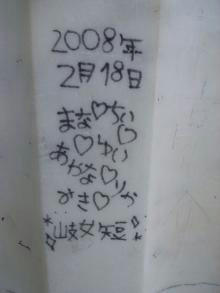 2008年
2月18日
まな♡ちい
♡
あ♡ゆい
かな♡り
みき♡か
山岐女短